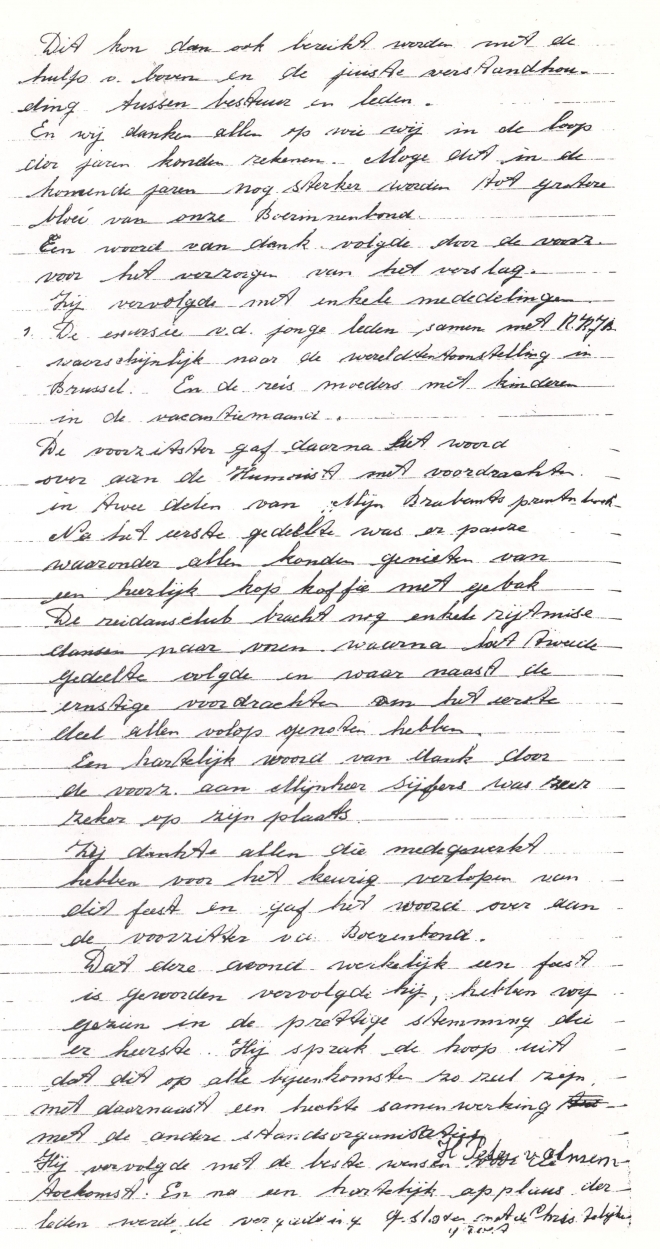 Dit kon dan ook bereikt worden met de
hulp v. boven en de juiste verstandhou-
ding tussen bestuur en leden.
En wij danken allen op wie wij in de loop
der jaren konden rekenen. Moge dit in de
komende jaren nog sterker worden tot grotere
bloei van onze Boerinnenbond.
Een woord van dank volgde door de voorz.
voor het verzorgen van het verslag.
Zij vervolgde met enkele mededelingen
1. De excursie v.d. jonge leden samen met
waarschijnlijk naar de wereldtentoonstelling in
Brussel. En de reis moeders met kinderen
in de vacantiemaand.
De voorzitster gaf daarna het woord
over aan de Humorist met voordrachten
in twee delen van "Mijn Brabants prentenboek"
Na het eerste gedeelte was er pauze
waaronder allen konden genieten van
een heerlijk kop koffie met gebak
De reidansclub bracht nog enkele rijtmise
dansen naar voren waarna het tweede
gedeelte volgde en waar naast de
ernstige voordrachten van het eerste
deel allen volop genoten hebben.
Een hartelijk woord van dank door
de voorz. aan Mijnheer Sijbers was zeer
zeker op zijn plaats.
Zij dankte allen die medegewerkt
hebben voor het keurig verlopen van
dit feest en gaf het woord over aan
de voorzitter v.d. Boerenbond.
Dat deze avond werkelijk een feest
is geworden vervolgde hij, hebben wij
gezien in de prettige stemming die
er heerste. Hij sprak de hoop uit
dat dit op alle bijeenkomsten zo zal zijn,
met daarnaast een hechte samenwerking
met de andere standsorganisaties
Hij vervolgde met de beste wensen voor de
toekomst. En na een hartelijk applaus der
leden werd de vergadering gesloten met de Christelijke
groet